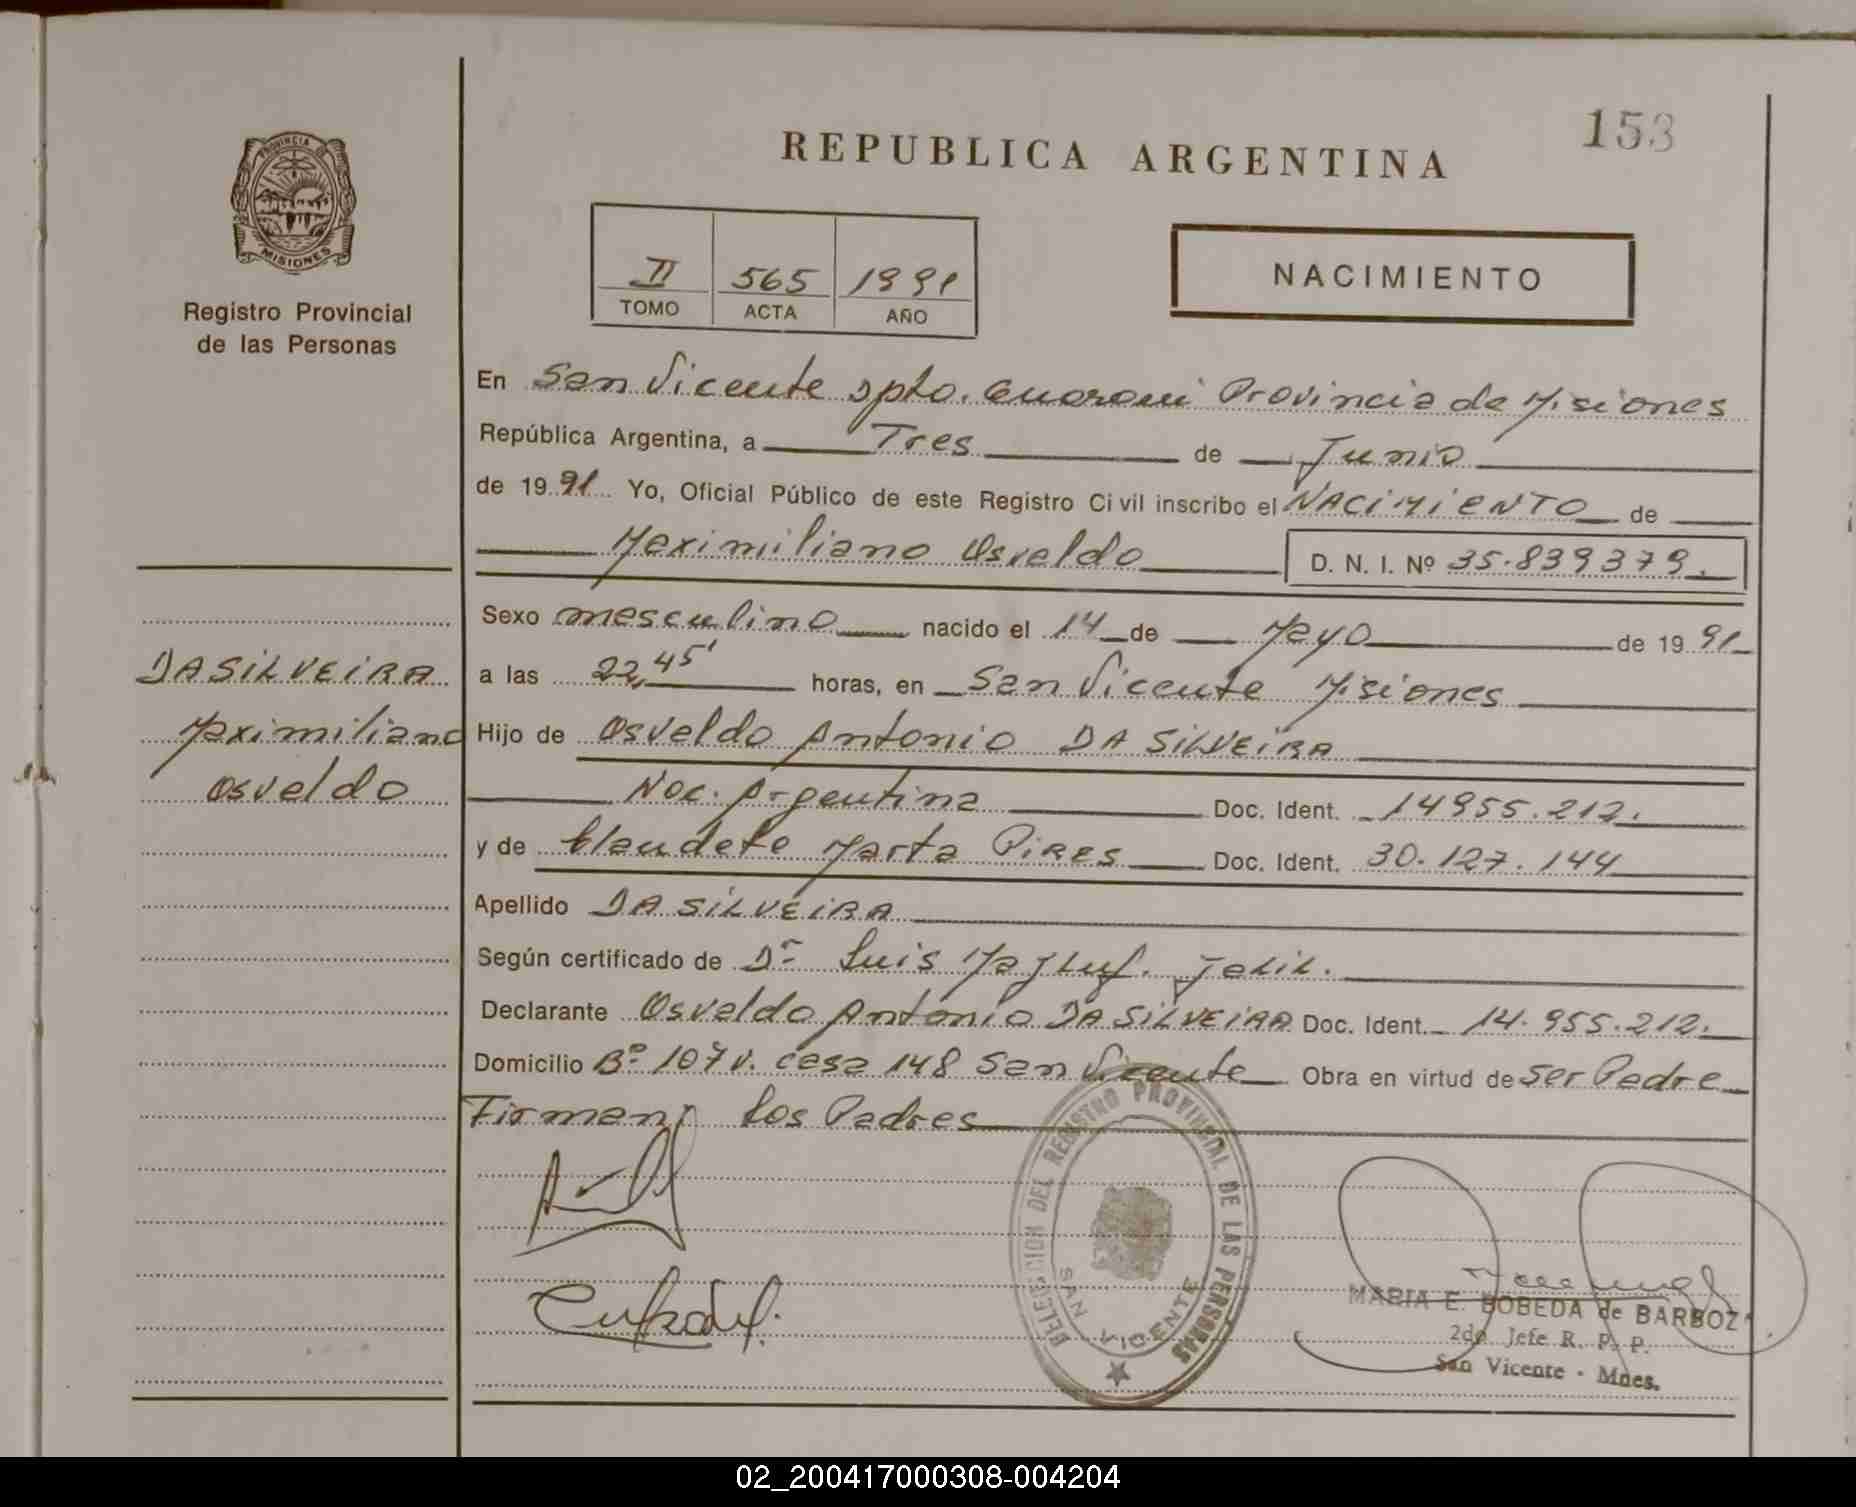 153
REPUBLICA ARGENTINA
PROVINCIA DE
MISIONES
Registro Provincial
de las Personas
II 565 1991
TOMO ACTA AÑO
NACIMIENTO
En San Vicente Dpto. Guarani Provincia de Misiones
República Argentina, a Tres de Junio
de 1991 Yo, Oficial Público de este Registro Civil inscribo el NACIMIENTO de
Maximiliano Osvaldo D. N. I. Nº 35.839379.
Sexo masculino nacido el 14 de Mayo de 1991
a las 22,45' horas, en San Vicente Misiones
DA SILVEIRA
Maximiliano
Osvaldo
Hijo de Osvaldo Antonio DA SILVEIRA
Nac. Argentina Doc. Ident. 14955.212.
y de Claudete Marta PIRES Doc. Ident. 30.127.144
Apellido DA SILVEIRA
Según certificado de Dr Luis
Declarante Osvaldo Antonio DA SILVEIRA Doc. Ident. 14.955.212.
Domicilio Bº 107 v. casa 148 San Vicente Obra en virtud de ser Padre
Firman Los Padres
DELEGACION DEL REGISTRO PROVINCIAL DE LAS PERSONAS
SAN VICENTE
MARIA E. BOBEDA de BARBOZA
2do Jefe R. P. P.
San Vicente - Mnes.
02_200417000308-004204